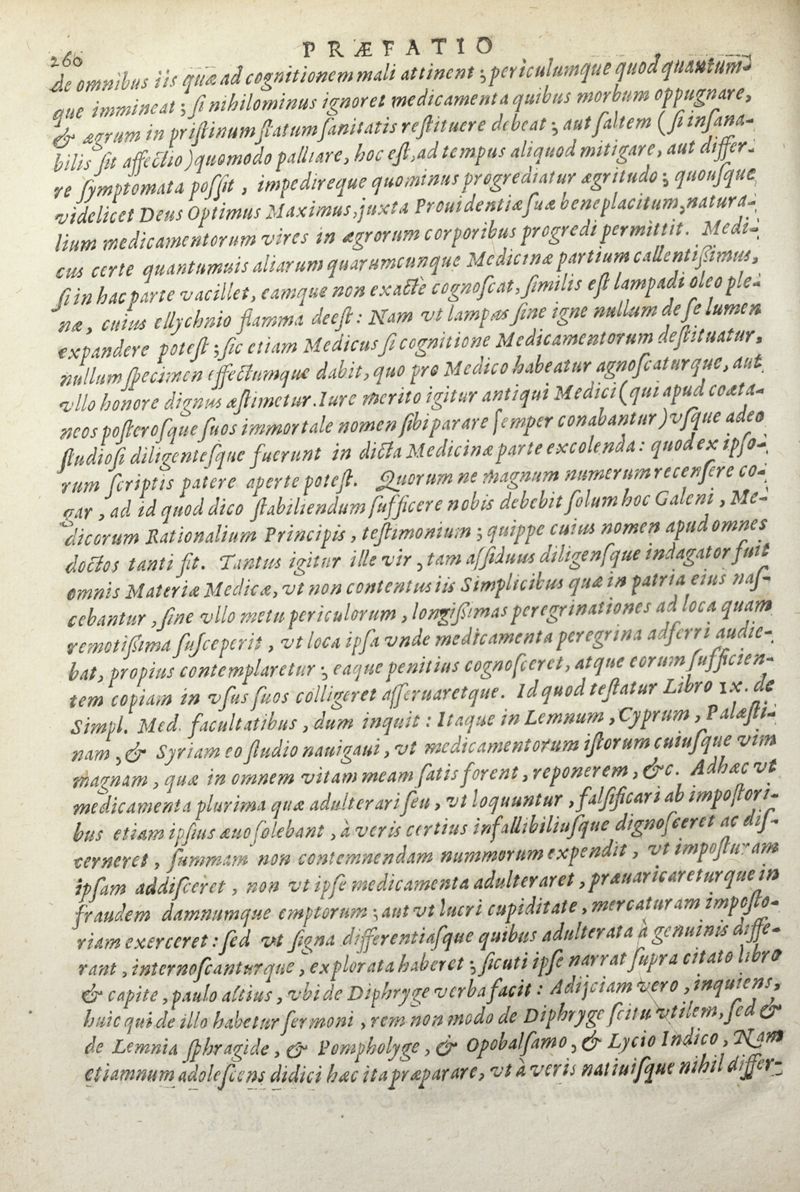 260
PRÆFATIO
de omnibus iis quæ ad cognitionem mali attinent ; periculumque quod quantum-
que immineat ; si nihilominus ignoret medicamenta quibus morbum oppugnare,
& ægrum in pristinum statum sanitatis restituere debeat ; aut saltem (si insana-
bilis sit affectio) quomodo palliare, hoc est, ad tempus aliquod mitigare, aut differ-
re symptomata possit, impedireque quominus progrediatur ægritudo ; quousque
videlicet Deus Optimus Maximus, juxta Prouidentiæ suæ beneplacitum, natura-
lium medicamentorum vires in ægrorum corporibus progredi permittit. Medi-
cus certe quantumuis aliarum quarumcunque Medicinæ partium callentissimus,
si in hac parte vacillet, eamque non exacte cognoscat, similis est lampadi oleo ple-
næ, cuius ellychnio flamma deest : Nam vt lampas sine igne nullum de se lumen
expandere potest ; sic etiam Medicus si cognitione Medicamentorum destituatur,
nullum specimen effectumque dabit, quo pro Medico habeatur agnoscaturque, aut
vllo honore dignus æstimetur. Iure merito igitur antiqui Medici (qui apud coæta-
neos posterosque suos immortale nomen sibi parare semper conabantur) vsque adeo
studiosi diligentesque fuerunt in dicta Medicinæ parte excolenda : quod ex ipso-
rum scriptis patere aperte potest. Quorum ne magnum numerum recensere co-
gar, ad id quod dico stabiliendum sufficere nobis debebit solum hoc Galeni, Me-
dicorum Rationalium Principis, testimonium ; quippe cuius nomen apud omnes
doctos tanti fit. Tantus igitur ille vir, tam assiduus diligensque indagator fuit
omnis Materiæ Medicæ, vt non contentus iis Simplicibus quæ in patria eius nas-
cebantur, sine vllo metu periculorum, longissimas peregrinationes ad loca quam
remotissima susceperit, vt loca ipsa vnde medicamenta peregrina adferri audie-
bat, propius contemplaretur ; eaque penitius cognosceret, atque eorum sufficien-
tem copiam in vsus suos colligeret asseruaretque. Id quod testatur Libro IX. de
Simpl. Med. facultatibus, dum inquit : Itaque in Lemnum, Cyprum, Palæsti-
nam, & Syriam eo studio nauigaui, vt medicamentorum istorum cuiusque vim
magnam, quæ in omnem vitam meam satis forent, reponerem, &c. Adhæc vt
medicamenta plurima quæ adulterari seu, vt loquuntur, falsificari ab impostori-
bus etiam ipsius æuo solebant, à veris certius infallibiliusque dignosceret ac dis-
cerneret, summam non contemnendam nummorum expendit, vt imposturam
ipsam addisceret, non vt ipse medicamenta adulteraret, præuaricareturque in
fraudem damnumque emptorum ; aut vt lucri cupiditate, mercaturam imposto-
riam exerceret : sed vt signa differentiasque quibus adulterata à genuinis diffe-
rant, internoscanturque, explorata haberet ; sicuti ipse narrat supra citato libro
& capite, paulo altius, vbi de Diphryge verba facit : Adijciam vero, inquiens,
huic qui de illo habetur sermoni, rem non modo de Diphryge scitu vtilem, sed &
de Lemnia sphragide, & Pompholyge, & Opobalsamo, & Lycio Indico, Nam
etiamnum adolescens didici hæc ita præparare, vt à veris natiuisque nihil differ-